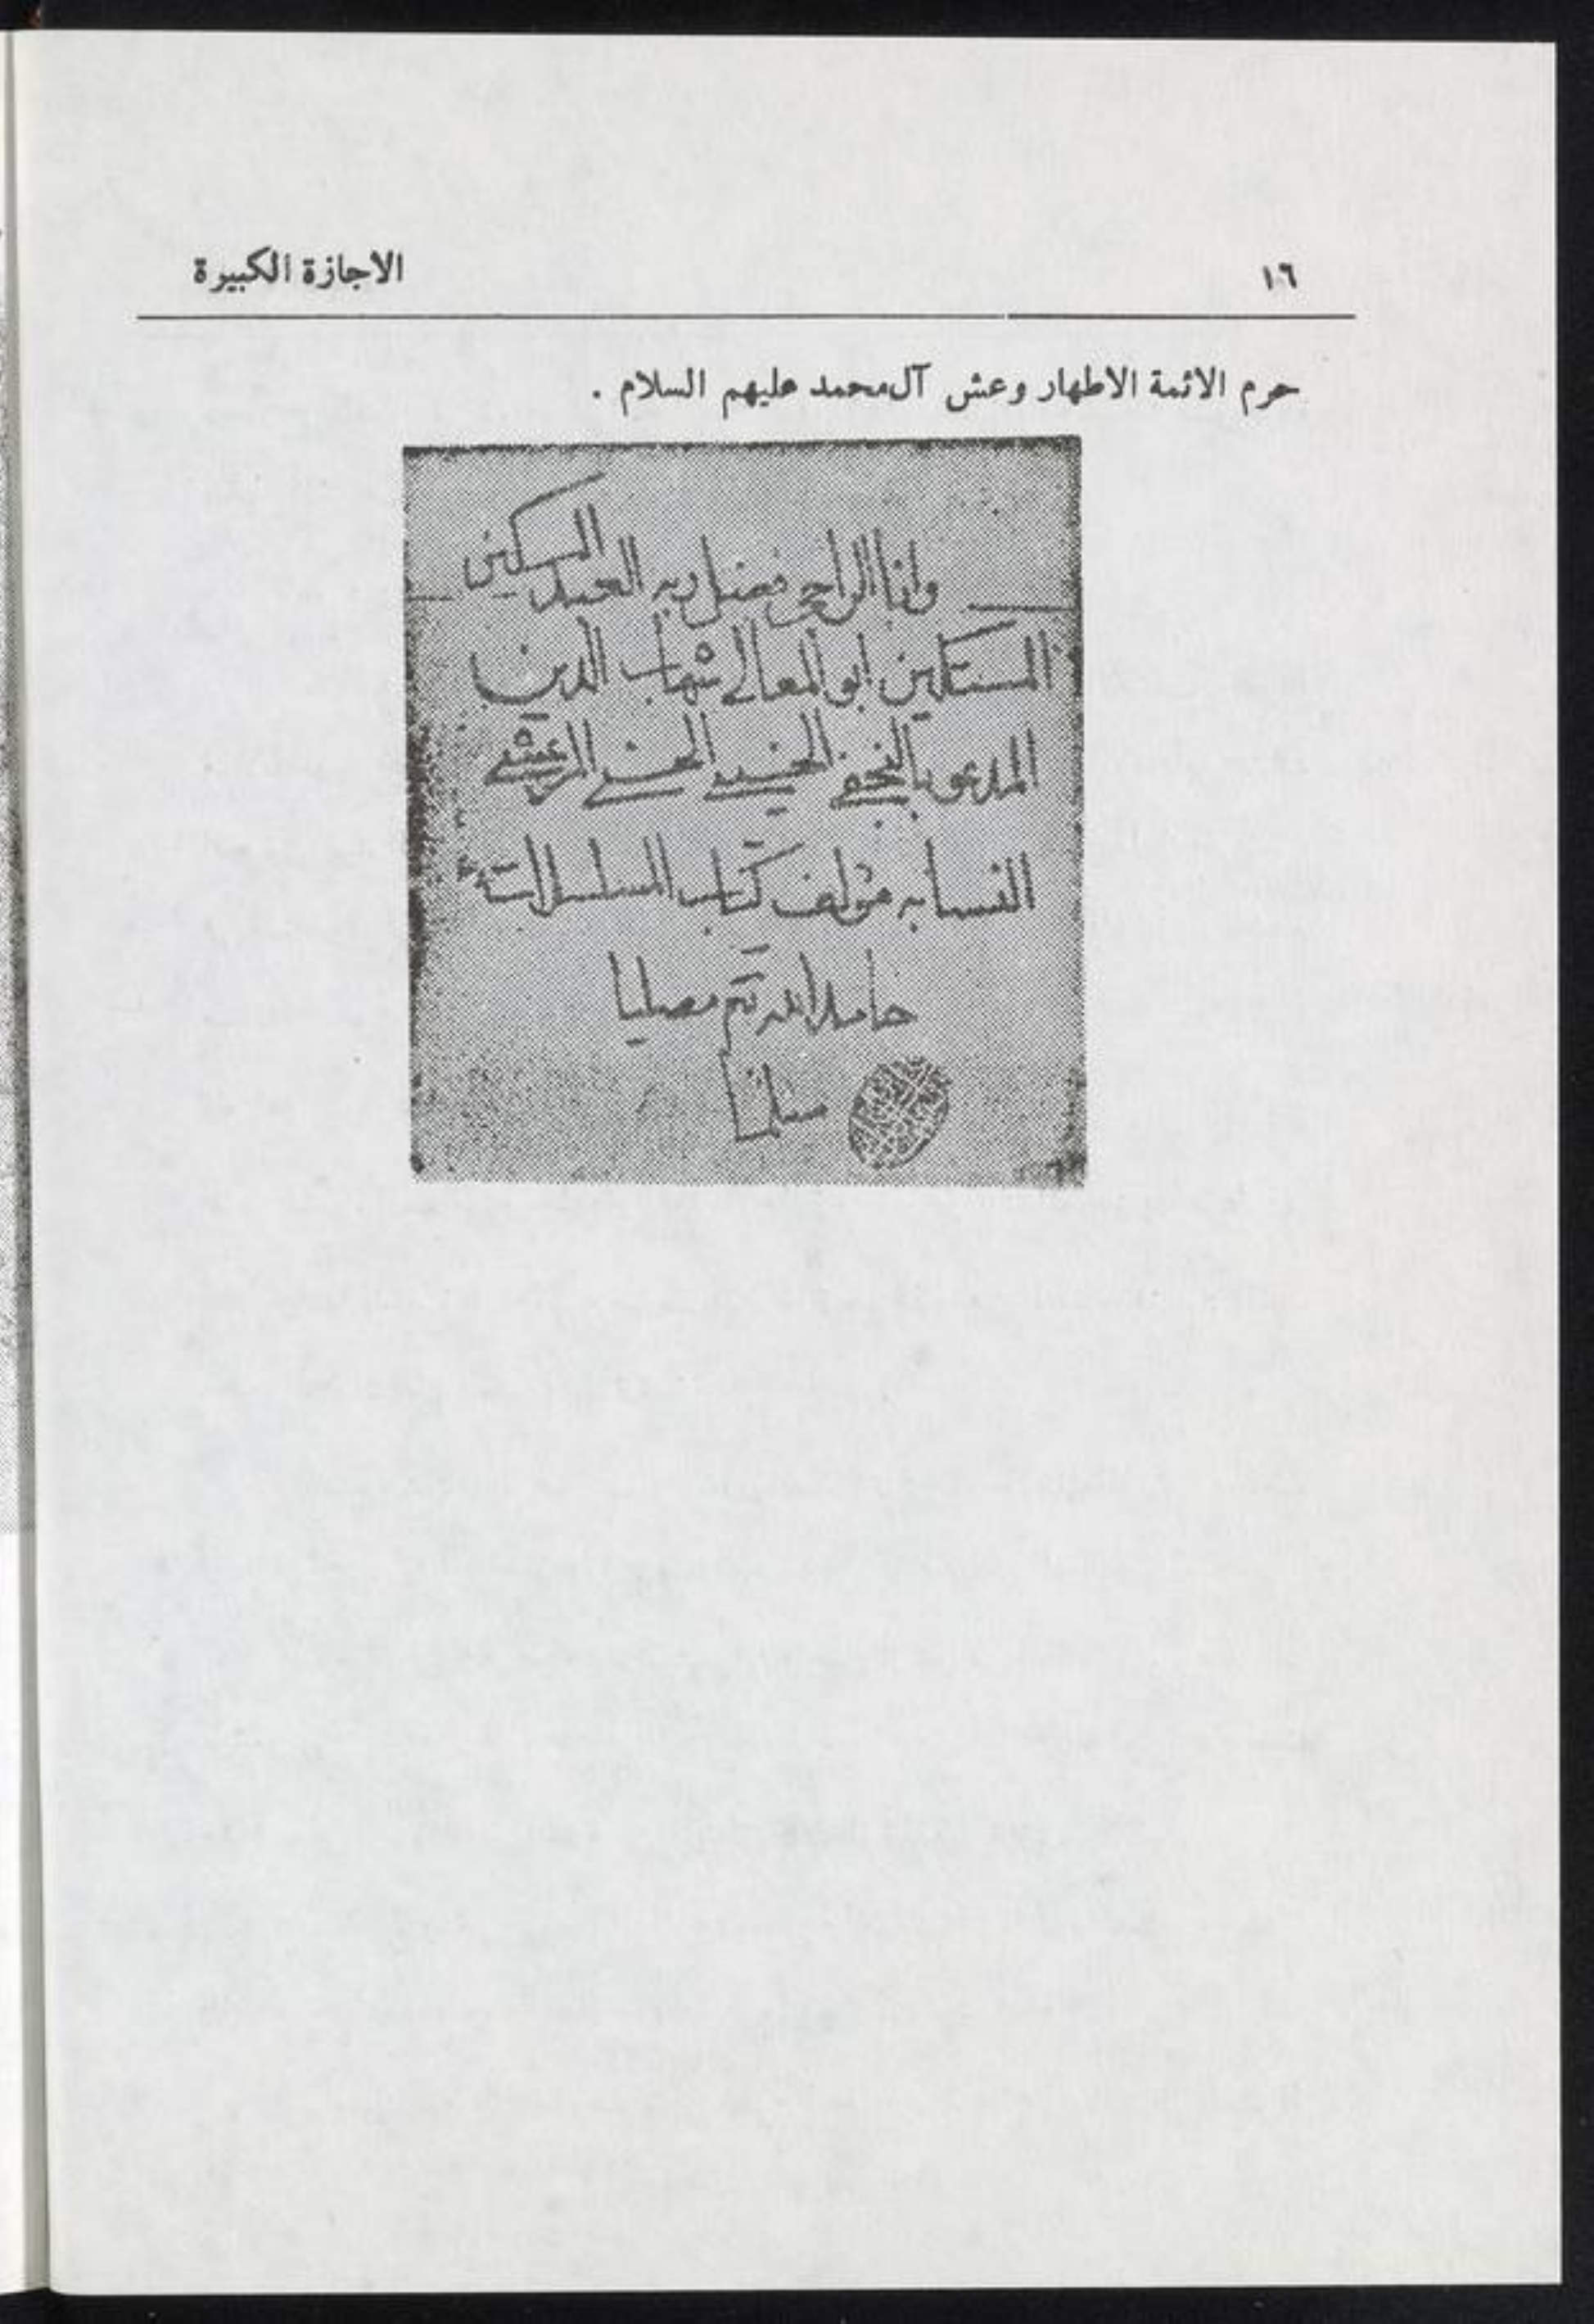 ١٦
الاجازة الكبيرة
حرم الائمة الاطهار وعش آل محمد عليهم السلام .
وانا الراجی فضل ربه العبد المسکین
المستکین ابو المعالی شهاب الدین
المدعو بالنجفی الحسینی الحسنی المرعشی
النسابه مؤلف کتاب
حامدا لله مصلیا
مسلما